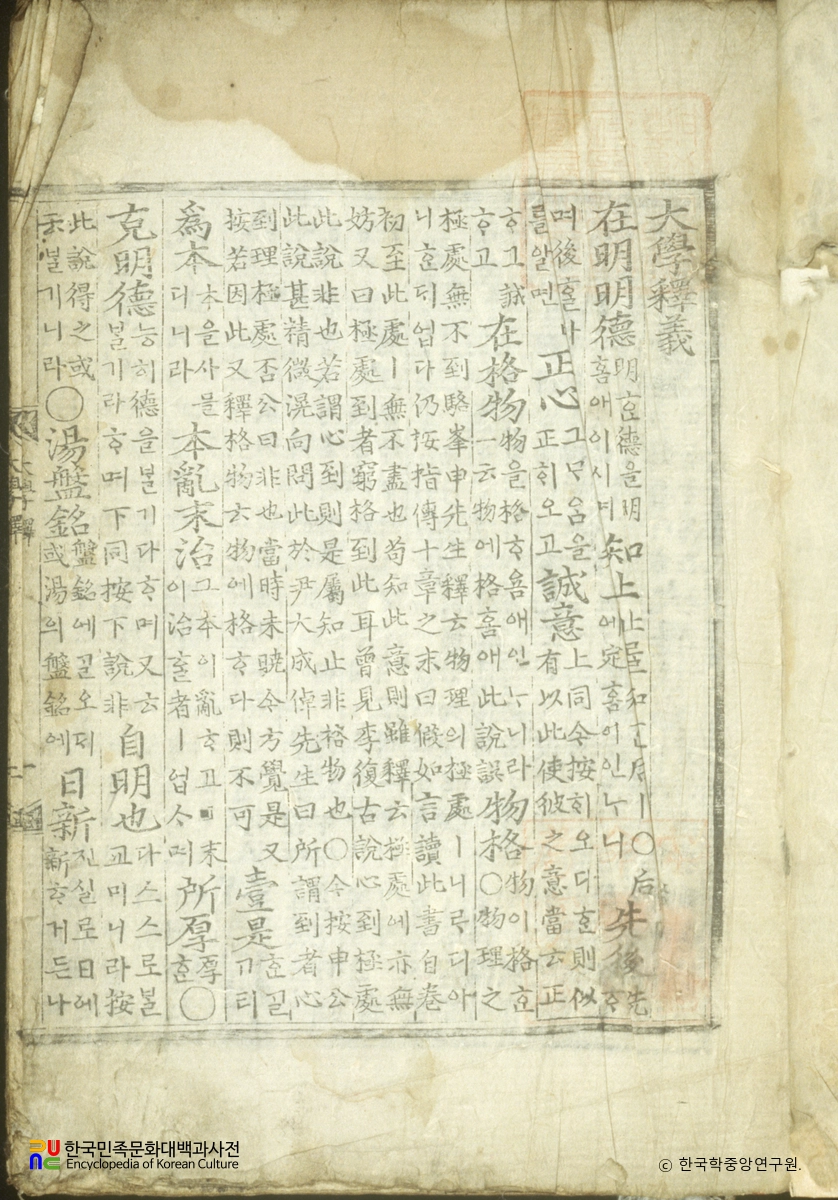 大學釋義
在明明德 明ᄒᆞᆫ德을明
홈애이시며
知止
에定홈이인ᄂᆞ니
○后 先後 先
ᄒᆞ
며後ᄒᆞᆯ나
를알면
正心 그ᄆᆞᄋᆞᆷ을
正히오고
誠意 上同今按히오디ᄒᆞᆫ則似
有以此使彼之意當云正
ᄒᆞ그誠
ᄒᆞ고
在格物 物을格ᄒᆞ욤애인ᄂᆞ니라
一云物에格홈애此說誤
物格 物이格ᄒᆞᆫ
○物理之
極處無不到駱峯申先生釋云物理의極處ㅣ니르디아
니ᄒᆞᆫ되업다仍按指傳十章之末曰假如言讀此書自卷
初至此處ㅣ無不盡也苟知此意則雖釋云極處에亦無
妨又曰極處到者窮格到此耳曾見李復古說心到極處
此說非也若謂心到則是屬知止非格物也○今按申公
此說甚精微滉向問此於尹大成倬先生曰所謂到者心
到理極處否公曰非也當時未曉今方覺是又
按若因此又釋格物云物에格ᄒᆞ다則不可
壹是 ᄒᆞᆫᄀᆞᆯ
ᄀᆞ티
爲本 本을사믈
디니라
本亂末治 그本이亂ᄒᆞ고末
이治ᄒᆞᆯ者ㅣ업스며
所厚 厚
ᄒᆞᆫ
○
克明德 능히德을ᄇᆞᆯ기다ᄒᆞ며又云
ᄇᆞᆯ기라ᄒᆞ며下同按下說非
自明也 다스스로ᄇᆞᆯ
교미니라按
此說得之或
云ᄇᆞᆯ기니라
○湯盤銘 盤銘에ᄀᆞᆯ오ᄃᆡ
或湯의盤銘에
日新 진실로日에
新ᄒᆞ거든나
大學釋
한국민족문화대백과사전
Encyclopedia of Korean Culture
ⓒ 한국학중앙연구원.